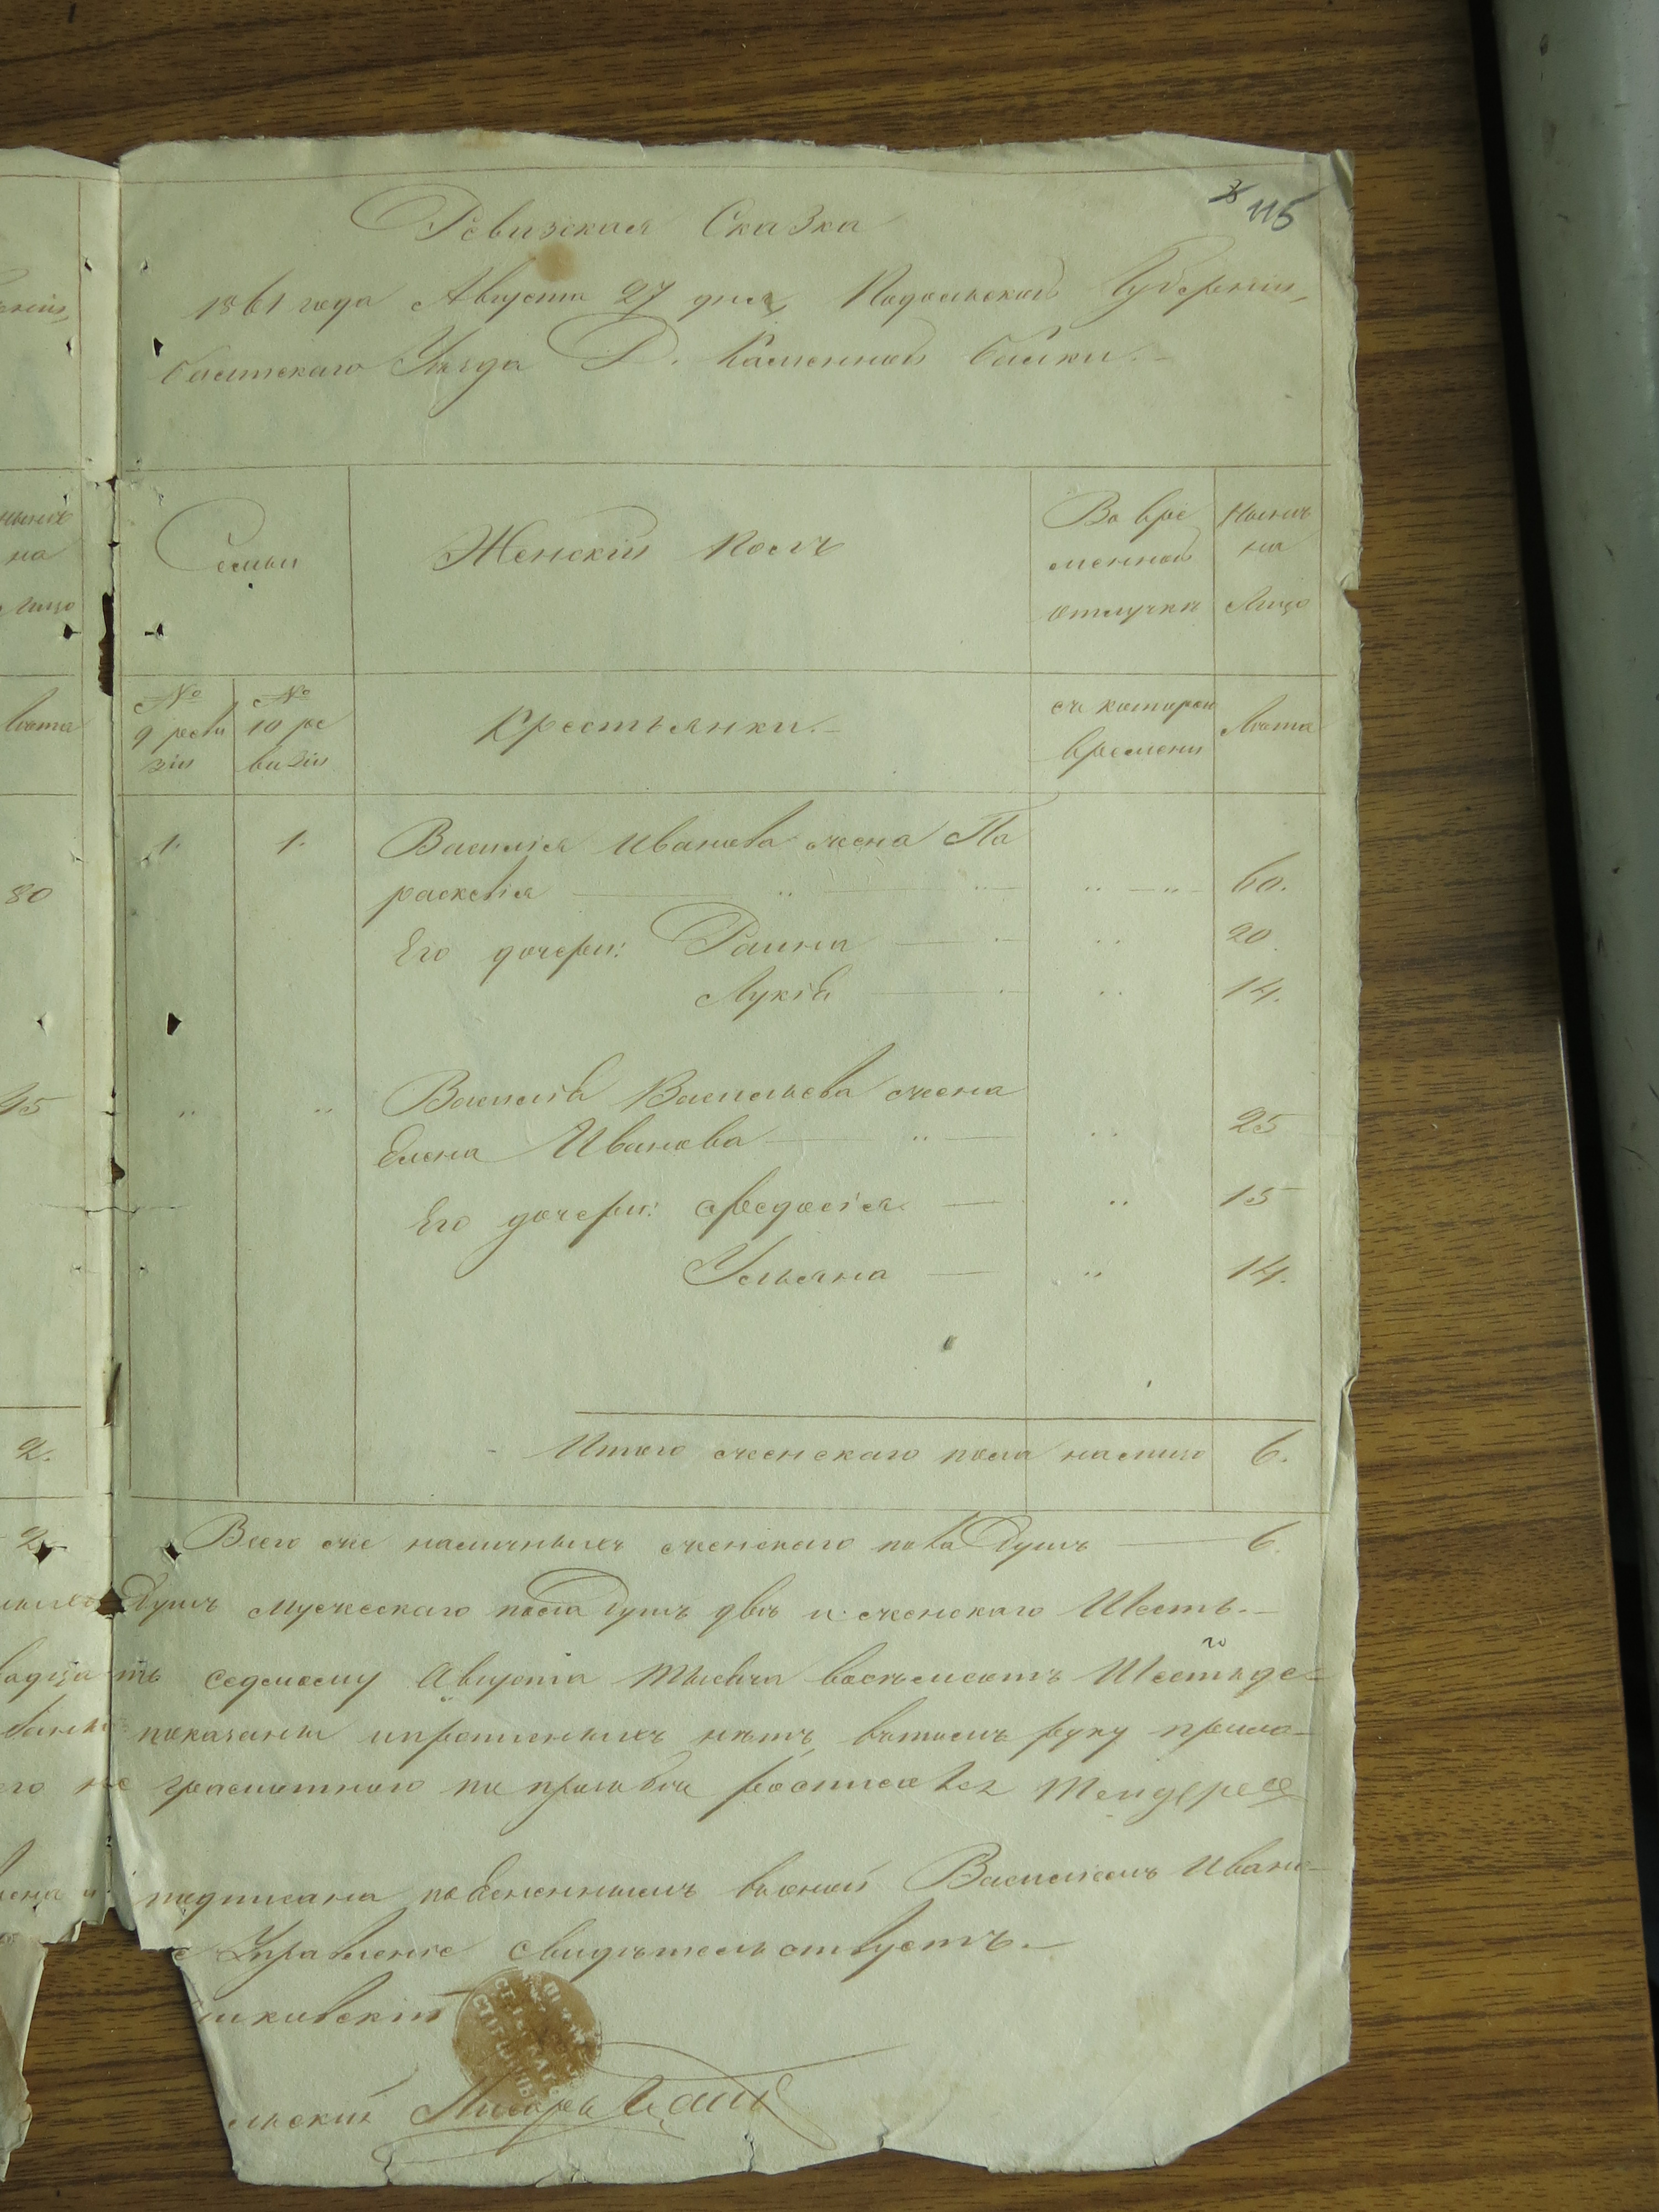 115
Ревизская Сказка
1861 года Августа 27 дня, Подольской Губерніи,
Балтскаго Уѣзда Д. Каменной Балки.
Семьи
Женскій Полъ
Во вре
менной
отлучкѣ
Нынѣ
на
Лицо
№
9 реви
зіи
№
10 ре
визіи
Крестьянки.
съ котораго
времени
Лѣта
1. 1. Василія Иванова жена Па
раскевія 60.
Его дочери: Раина 20
Лукія 14.
Василія Васильева жена
Елена Иванова 25
Его дочери: Федосія 15
Ульяна 14.
Итого женскаго пола на лицо 6.
Всего же наличныхъ женскаго пола Душъ 6.
Душъ мужескаго пола душъ двѣ и женскаго Шесть.
ть седьмому Августа Тысяча восемьсотъ Шестьде
показаній и прописныхъ нѣтъ, въ томъ руку прило-
грамотного по прозьбѣ росписался
подписана поименнымъ въ оной Василіемъ Ивано-
Управленіе свидѣтельствуетъ.
льскій Писарь
80
45
2.
2